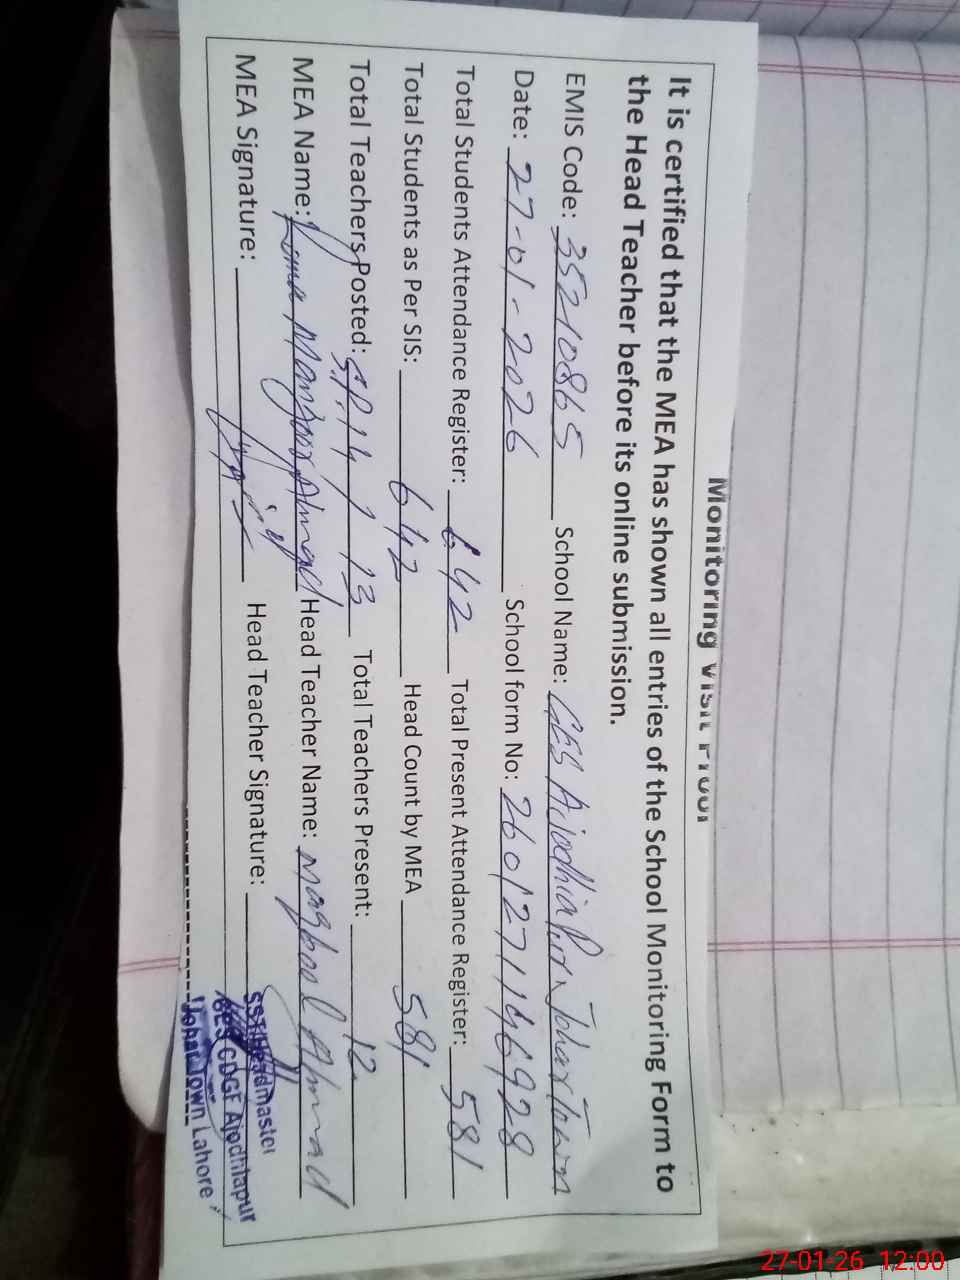 Monitoring Visit Proof
It is certified that the MEA has shown all entries of the School Monitoring Form to
the Head Teacher before its online submission.
EMIS Code: 35210865 School Name: GES Ajodhia Pur, Johar Town
Date: 27-01-2026 School form No: 2601271146928
Total Students Attendance Register: 642 Total Present Attendance Register: 581
Total Students as Per SIS: 642 Head Count by MEA 581
Total Teachers Posted: S.P.14 / 13 Total Teachers Present: 12
MEA Name: Manzoor Ahmad Head Teacher Name: Maqbool Ahmad
MEA Signature: Head Teacher Signature:
SST/Headmaster
GES CDGF Ajodhiapur
Johar Town Lahore
27-01-26 12:00